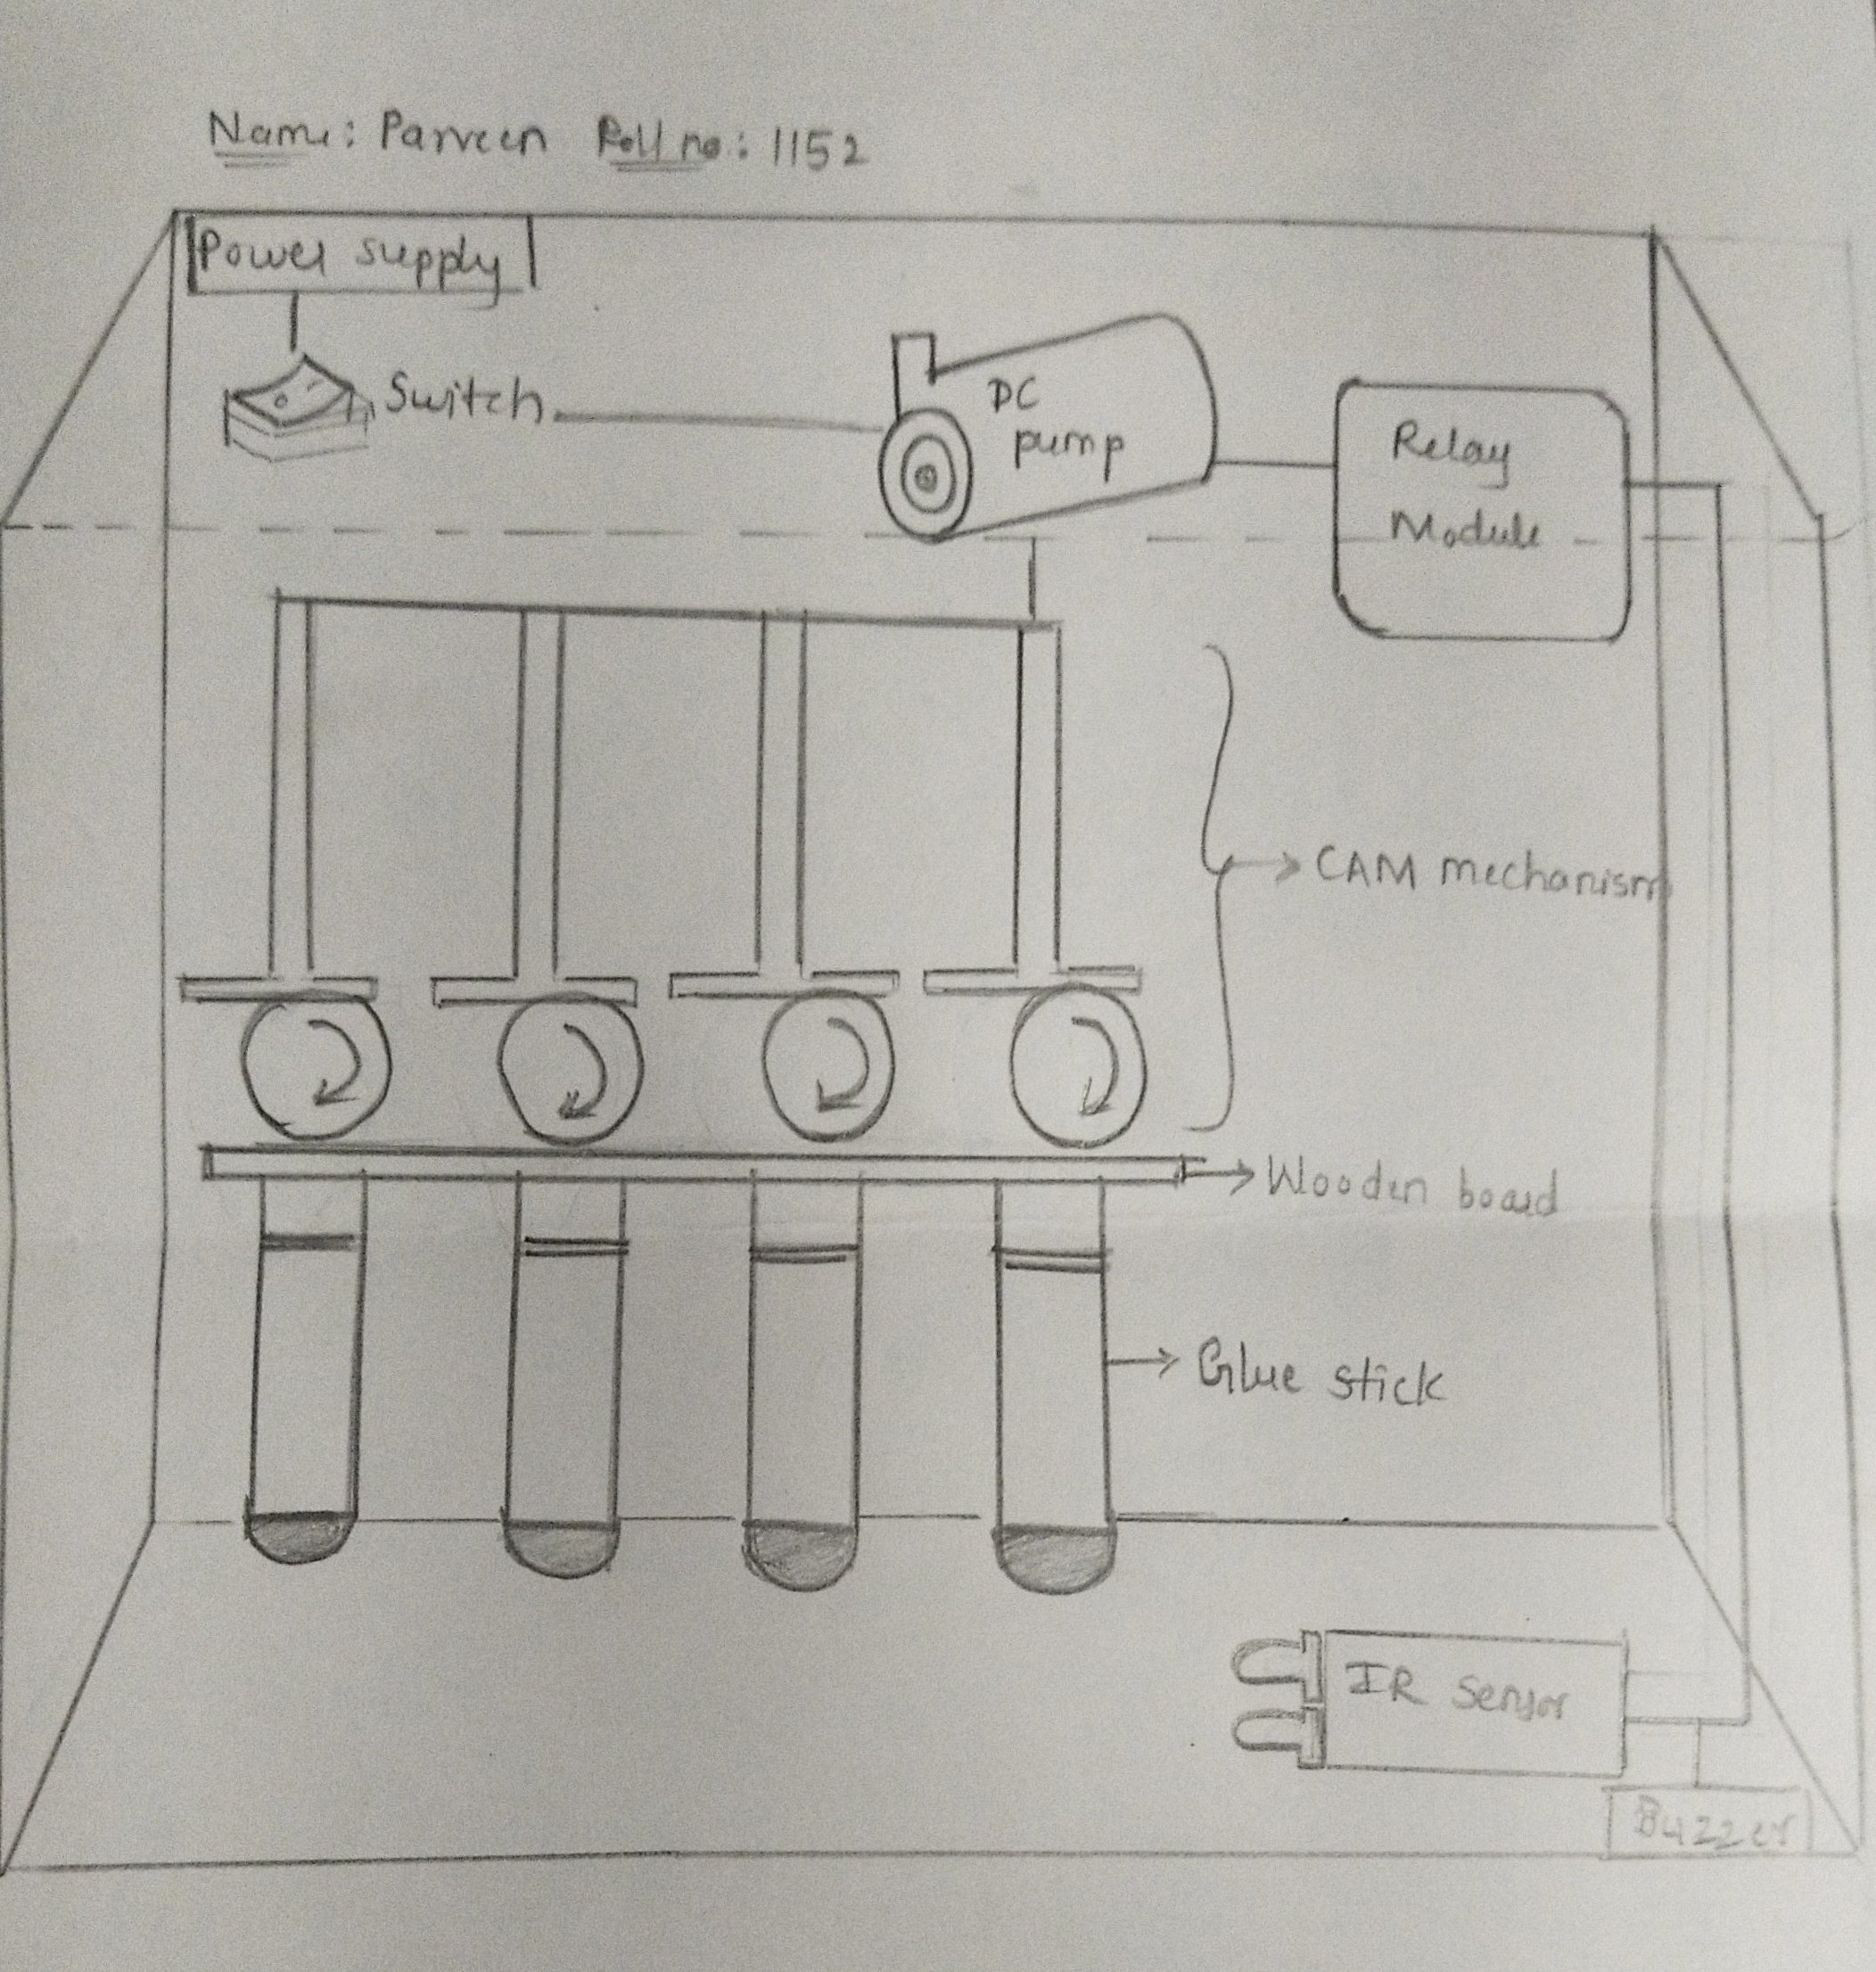 Name: Parveen Roll no: 1152
Power supply
Switch
DC
pump
Relay
Module
CAM mechanism
Wooden board
Glue stick
IR Sensor
Buzzer